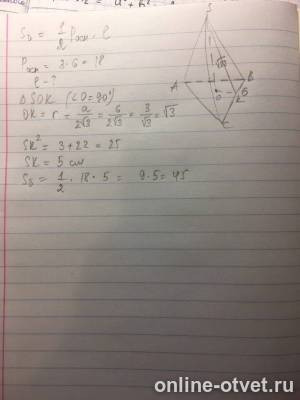 S_б = 1/2 P_осн · l
P_осн = 3·6 = 18
l - ?
△SOK (∠O = 90°)
OK = r = a/2√3 = 6/2√3 = 3/√3 = √3
SK² = 3+22 = 25
SK = 5 см
S_б = 1/2 · 18 · 5 = 9·5 = 45
S
√22
A
B
K
6
O
C
online-otvet.ru